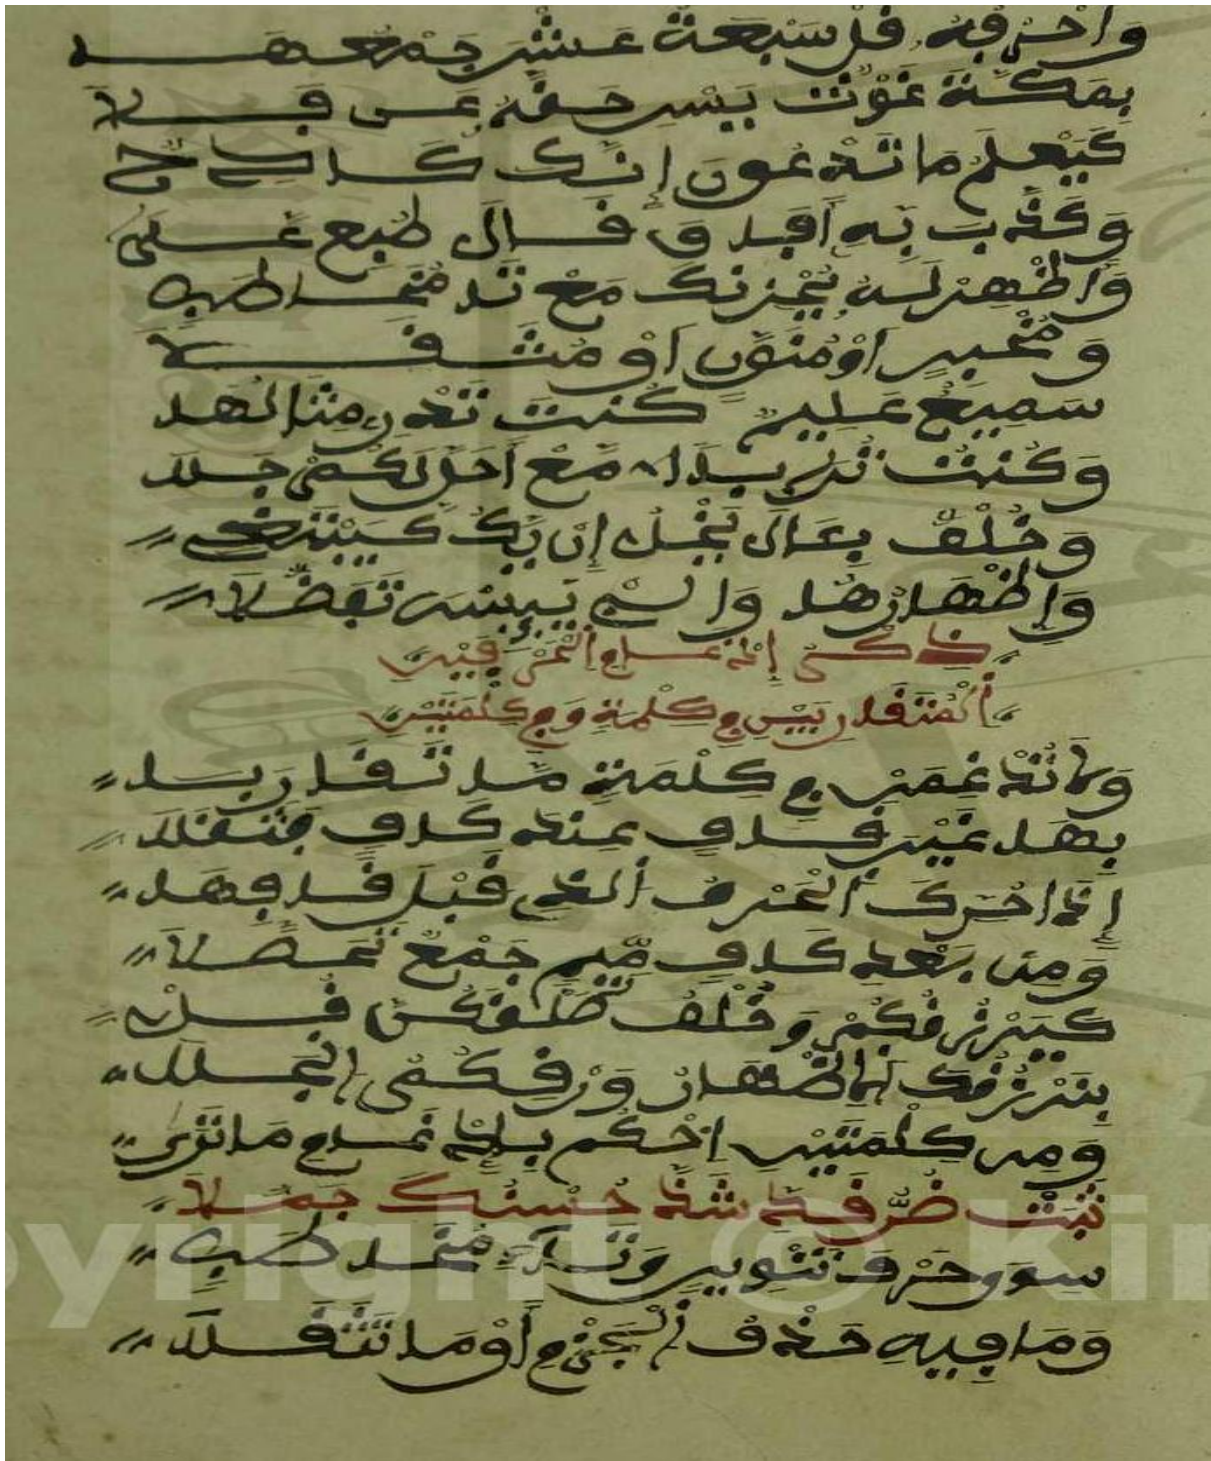 وَأَحْرُفُهُ قُلْ سَبْعَةَ عَشْرَ جَمْعُهَا
بِمَكَّةَ غَوْثٌ بَيْنَ حَقِّهِ عَسَى قَلَا
كَيَعْلَمُ مَا تَدْعُونَ إِنَّكَ كَ
وَكَذَّبَ بِهِ قَالَ طُبِعَ عَلَى
وَأَظْهِرْ لَهُ يَحْزُنْكَ مَعْ تَا مُخَاطَبٍ
وَمُخْبِرٍ أَوْ مُنَوَّنٍ أَوْ مُثَقَّلَا
سَمِيعٌ عَلِيمٌ كُنْتَ تَدْرِي مِثَالُهَا
وَكُنْتُ تُرَابًا مَعْ أَحَلَّ لَكُمْ جَلَا
وَخُلْفٌ بِعَالَ يَخْلُ إِنْ يَكُ كَيَبْتَغِي
وَإِظْهَارُهَا
ذكر إدغام الحرفين
المتقاربين في كلمة وفي كلمتين
وَلَا تُدْغِمَنْ فِي كِلْمَةٍ مَا تَقَارَبَا
بِهَا غَيْرَ قَافٍ عِنْدَ كَافٍ فَتَقْلَا
إِذَا حُرِّكَ الْحَرْفُ الَّذِي قَبْلَ قَافِهَا
وَمِنْ بَعْدِ كَافٍ مِيمُ جَمْعٍ تَحَصَّلَا
كَيَرْزُقُكُمْ وَخُلْفُ طَلَّقَكُنَّ قُلْ
بِنَرْزُقُكَ الْإِظْهَارُ وَرْقِكُمُ انْجَلَا
وَمِنْ كِلْمَتَيْنِ احْكُمْ بِإِدْغَامِ مَا تَرَى
ثَبَتْ ضُرُّ قَدْ شَذَّ حُسْنُكَ جَمَلَا
سِوَى حَرْفِ تَنْوِينٍ وَتَاءِ مُخَاطَبٍ
وَمَا فِيهِ حَذْفُ الْجَزْمِ أَوْ مَا تَثَقَّلَا
Copyright © Kin